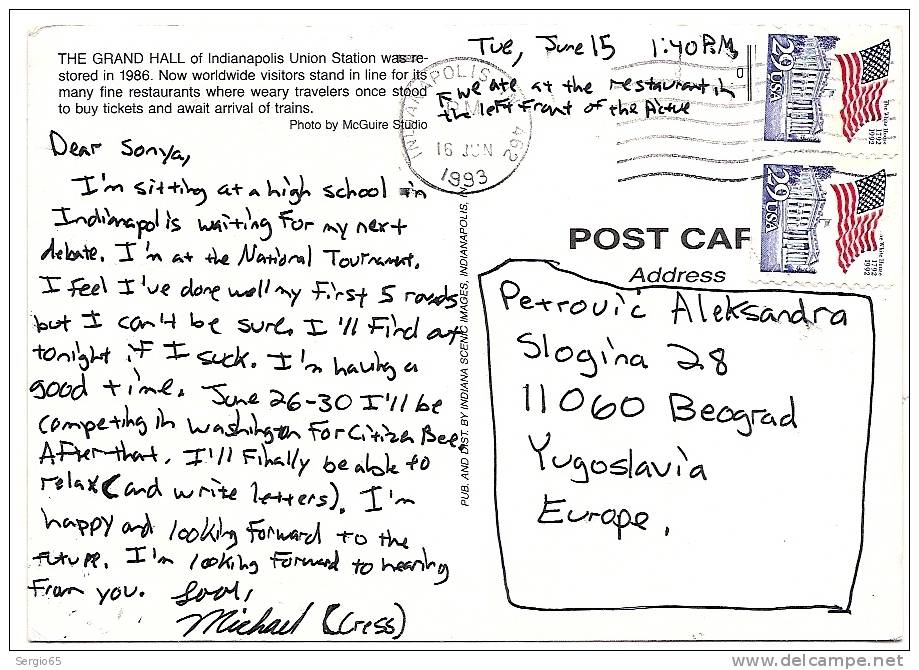 THE GRAND HALL of Indianapolis Union Station was re-
stored in 1986. Now worldwide visitors stand in line for its
many fine restaurants where weary travelers once stood
to buy tickets and await arrival of trains.
Photo by McGuire Studio
Tue, June 15 1:40 P.M.
we ate at the restaurant in
the left front of the
INDIANAPOLIS
PM
462
16 JUN
1993
29 USA
The White House
1792 1992
29 USA
The White House
1792 1992
Dear Sonya,
I'm sitting at a high school in
Indianapolis waiting for my next
debate. I'm at the National Tournament.
I feel I've done well my first 5 rounds
but I can't be sure. I'll find out
tonight if I suck. I'm having a
good time. June 26-30 I'll be
competing in Washington for Citizen Bee.
After that, I'll finally be able to
relax (and write letters). I'm
happy and looking forward to the
future. I'm looking forward to hearing
from you. Love,
Michael (Cress)
PUB. AND DIST. BY INDIANA SCENIC IMAGES, INDIANAPOLIS,
POST CAR
Address
Petrović Aleksandra
Slogina 28
11060 Beograd
Yugoslavia
Europe,
Sergio65
delcampe.net